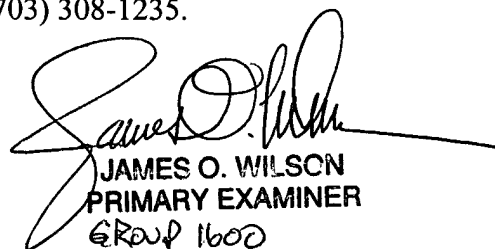 703) 308-1235.
James O. Wilson
JAMES O. WILSON
PRIMARY EXAMINER
GROUP 1600